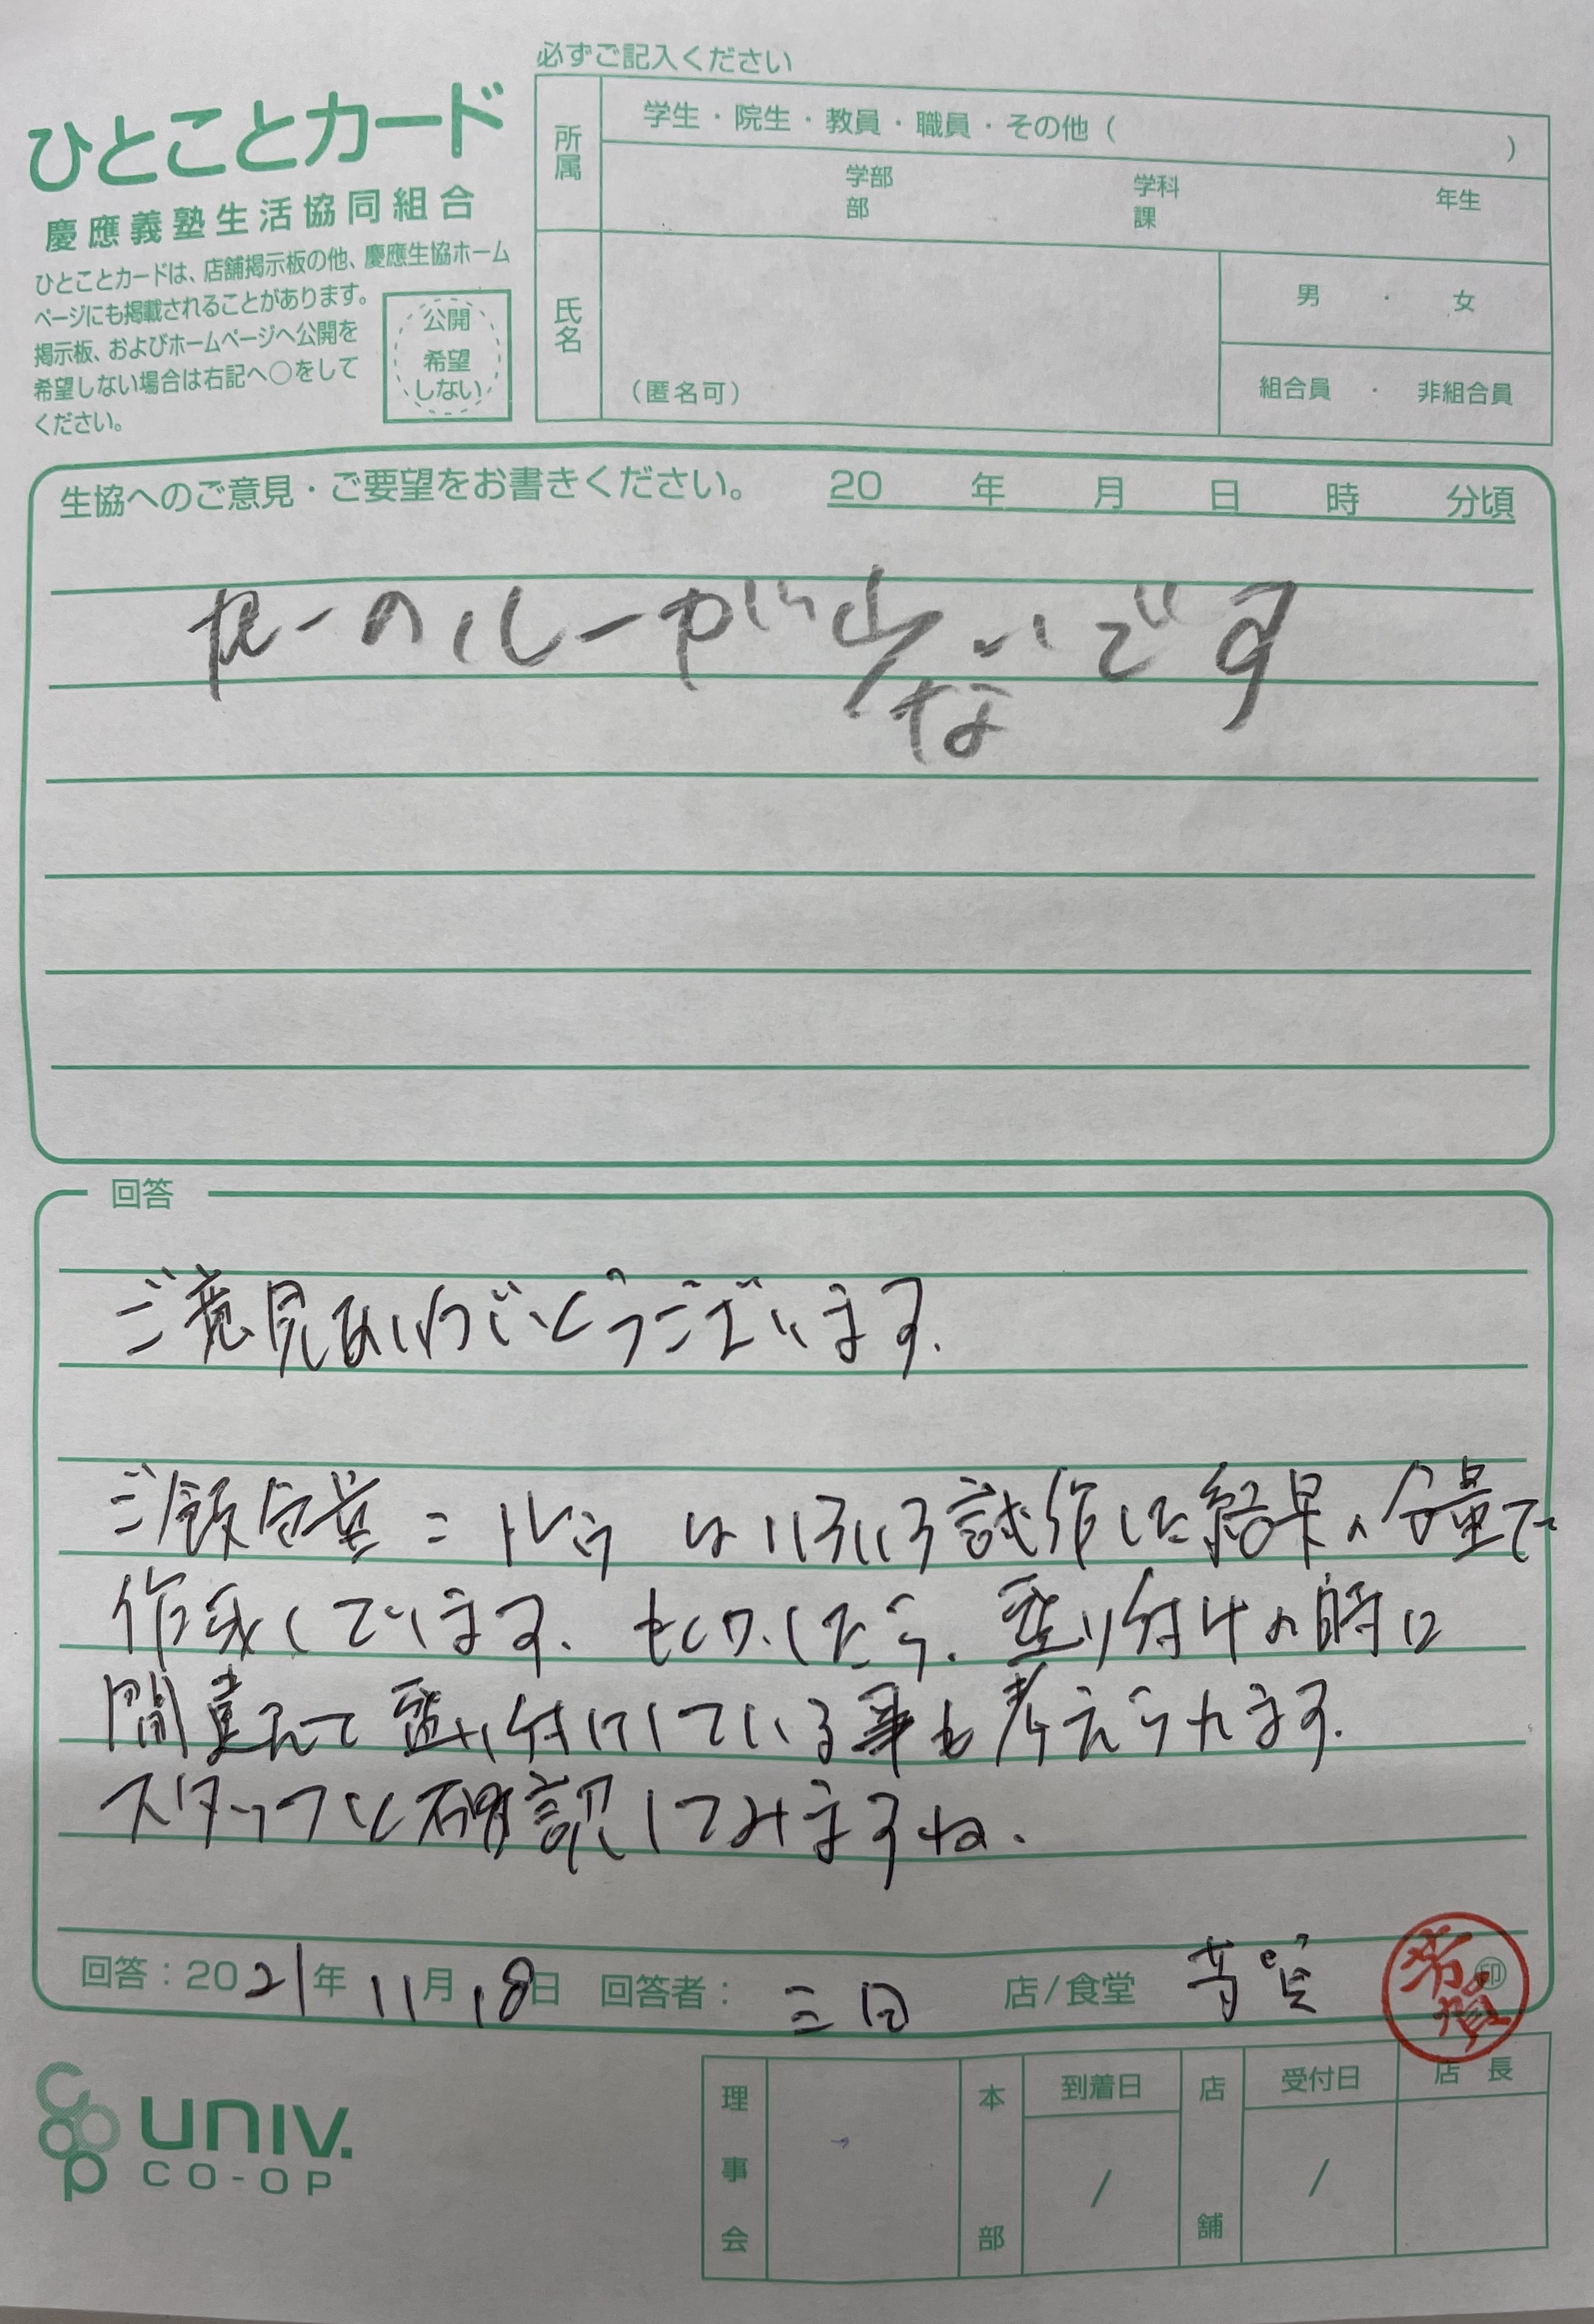 必ずご記入ください
ひとことカード
慶應義塾生活協同組合
ひとことカードは、店舗掲示板の他、慶應生協ホーム
ページにも掲載されることがあります。
掲示板、およびホームページへ公開を
希望しない場合は右記へ○をして
ください。
公開
希望
しない
所属
学生・院生・教員・職員・その他（　）
学部 学科 年生
部 課
氏名
（匿名可）
男・女
組合員・非組合員
生協へのご意見・ご要望をお書きください。 20 年 月 日 時 分頃
カレーのルーが少ないです
回答
ご意見ありがとうございます。
ご飯の量とルウはいろいろ試作した結果の分量で
作成しています。もしかしたら、盛り付けの時に
間違えて盛り付けしている事も考えられます。
スタッフと確認してみますね。
回答：2021年11月18日 回答者： 三田 店/食堂 芳賀
芳賀
印
UNIV.
CO-OP
理事会
本部
到着日
/
店舗
受付日
/
店長